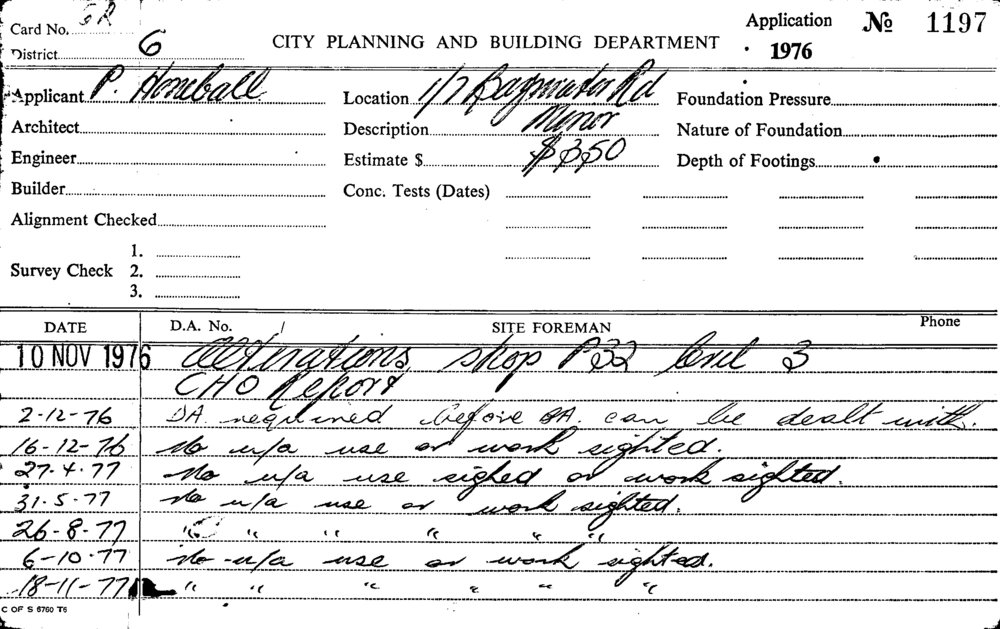 Card No. GR
Application № 1197
District 6
CITY PLANNING AND BUILDING DEPARTMENT
1976
Applicant P.
Location 1/7 Bayswater Rd
Foundation Pressure
Architect
Description Minor
Nature of Foundation
Engineer
Estimate $ $350
Depth of Footings
Builder
Conc. Tests (Dates)
Alignment Checked
1.
Survey Check 2.
3.
DATE D.A. No. / SITE FOREMAN Phone
10 NOV 1976 Alterations, shop P32 level 3
CHO Report
2-12-76 DA. required before BA. can be dealt with.
16-12-76 No u/a use or work sighted.
27.4.77 No u/a use sighed or work sighted.
31.5.77 No u/a use or work sighted.
26-8-77 " " " " " "
6-10-77 No u/a use or work sighted.
18-11-77 " " " " " "
C OF S 6760 T6